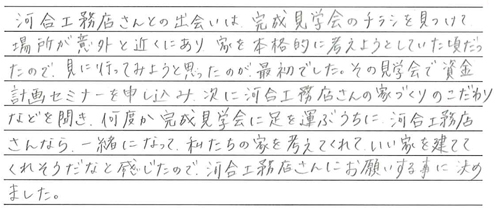 河合工務店さんとの出会いは、完成見学会のチラシを見つけて
場所が意外と近くにあり 家を本格的に考えようとしていた頃だっ
たので、見に行ってみようと思ったのが最初でした。その見学会で資金
計画セミナーを申し込み 次に河合工務店さんの家づくりのこだわり
などを聞き、何度か完成見学会に足を運ぶうちに、河合工務店
さんなら、一緒になって、私たちの家を考えてくれて、いい家を建てて
くれそうだなと感じたので、河合工務店さんにお願いする事に決め
ました。